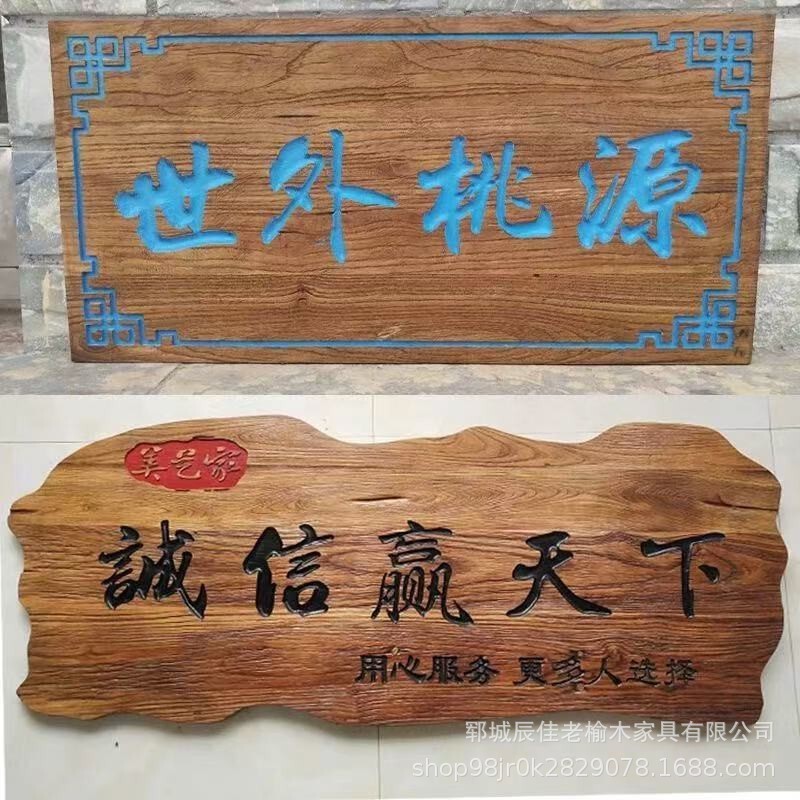 世外桃源
美艺家
誠信赢天下
用心服务 更多人选择
郓城辰佳老榆木家具有限公司
shop98jr0k2829078.1688.com